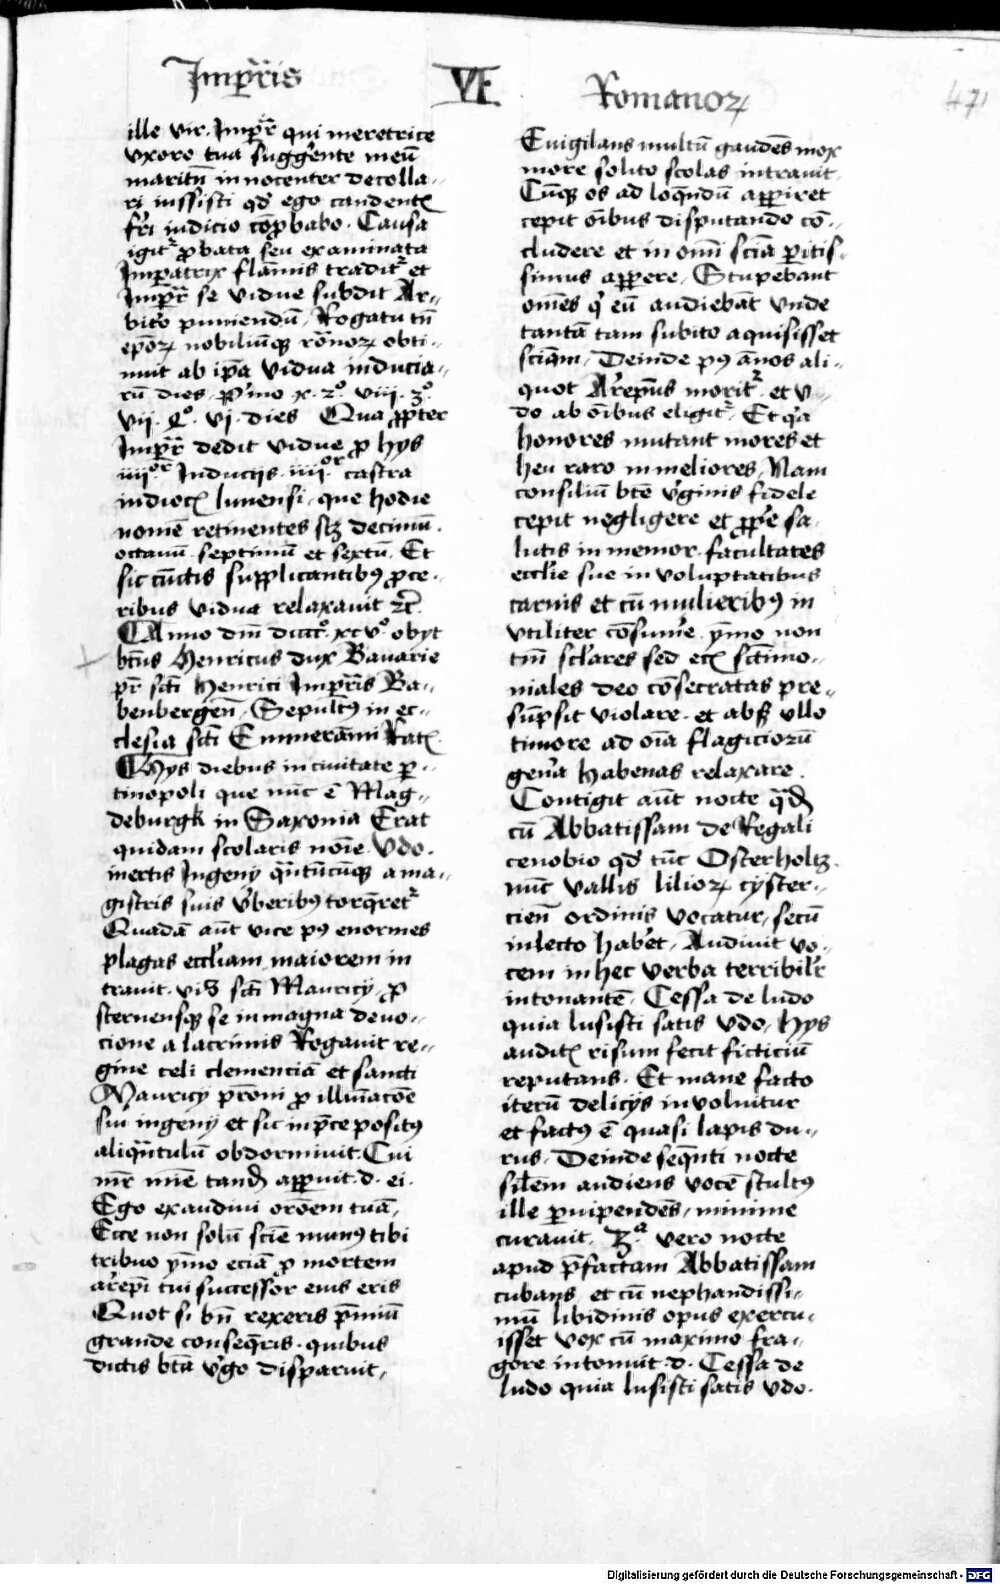 Imp̄ris VI Romanoꝝ 471
ille vir. Imp̄r qui meretrice
vxore tua sugg̓ente meū
maritū innocenter decolla-
ri iussisti qd̓ ego candentꝭ
fr̄i iudicio cōꝓbabo. Causa
igitᷣ ꝓbata seu examinata
Imꝑatrix flāmis traditᷣ et
Imp̄r se vidue subdit Ar-
bit̓o puniendū, Rogatu tn̄
ep̄oꝝ nobiliūqꝫ rōnoꝝ obti-
nuit ab ip̄a vidua inducia-
rū dies p̓mo .x. 2º. viii. 3º.
vii. 4º. vi. dies Qua ꝓpter
Imp̄r dedit vidue ꝓ hys
iiii or Inducijs. iiii or castra
in diocꝭ lunensi, que hodie
nomē retinentes scꝫ decimū.
octauū septimū et sextū. Et
sic cūctis supplicantibꝰ ꝓce-
ribus vidua relaxauit ⁊c̄
Anno dm̄ dccccº. xcvº. obyt
btūs Henricus dux Bauarie
pr̄ sc̄ti Henrici Imp̄ris Ba-
benbergeñ, Sepultꝰ in ec-
clesia sc̄ti Emmerāmi Ratꝭ
Hys diebus in ciuitate ꝑ-
tinopoli que nūc ē Mag-
deburgk in Saxonia Erat
quidam scolaris noīe Vdo.
inertis Ingeny qn̄tūcūqꝫ a ma-
gistris suis v̓beribꝰ torq̄retᷣ
Quadā aūt vice pꝰ enormes
plagas eccl̓iam maiorem in
trauit. viꝫ sc̄ti Mauricy, ꝓ
sternensqꝫ se in magna deuo-
cione a lacrimis Rogauit re-
gine celi clemenciā et sancti
Mauricy pr̄oni ꝓ illuīacōe
sui ingenij et sic in p̄ce positꝰ
aliqn̄tulū obdormiuit. Cui
mr̄ mīe tandꝫ apꝑuit .d. ei.
Ego exaudiui orōem tuā,
Ecce non solū sciē munꝰ tibi
tribuo ymo eciā ꝓ mortem
arep̄i tui successor eius eris
Quot si bn̄ rexeris p̄miū
grande conseq̄ris. quibus
dictis btā v̓go disparuit,
Euigilans multū gaudēs mox
more solito scolas intrauit,
Cūqꝫ os ad loq̄ndū apꝑiret
cepit oībus disputando cō-
cludere et in omī sciā ꝑitis-
simus apꝑere, Stupebant
omēs qͥ eū audiebāt vnde
tantā tam subito aquisisset
sciam, Deinde pꝰ ānos ali-
quot Ar̓epūs moritᷣ. et v-
do ab oībus eligitᷣ, Et qͥa
honores mutant mores et
heu raro in meliores, Nam
consiliū bt̄e v̓ginis fidele
cepit negligere et ꝓpͥe sa-
lutis inmemor. facultates
eccl̓ie sue in voluptatibus
carnis et cū mulieribꝰ in
vtiliter cōsum̓e, ymo non
tm̄ scl̓ares sed ecꝭ sc̄timo-
niales deo cōsecratas pre-
sūpsit violare. et absqꝫ vllo
timore ad oīa flagiciorū
gen̓a habenas relaxare.
Contigit aūt nocte qᷓdꝫ
cū Abbatissam de Regali
cenobio qd̓ tūc Osterholtz.
nūc vallis lilioꝝ cyster-
cieñ ordinis vocatur, secū
in lecto hab̓et, Audiuit vo-
cem in hec verba terribil̓r
intonantē, Cessa de ludo
quia lusisti satis Vdo, hys
auditꝭ risum fecit ficticiū
reputans. Et mane facto
iterū delicijs inuoluitur
et factꝰ ē quasi lapis du-
rus, Deinde seq̄nti nocte
sil̓em audiens vocē stultꝰ
ille ꝑuipendēs, minime
curauit, 3ᵃ. vero nocte
apud p̄factam Abbatissam
cubans et cū nephandissi-
mū libidinis opus exercu-
isset vox cū maximo fra-
gore intonuit .d. Cessa de
ludo quia lusisti satis vdo.
Digitalisierung gefördert durch die Deutsche Forschungsgemeinschaft - DFG